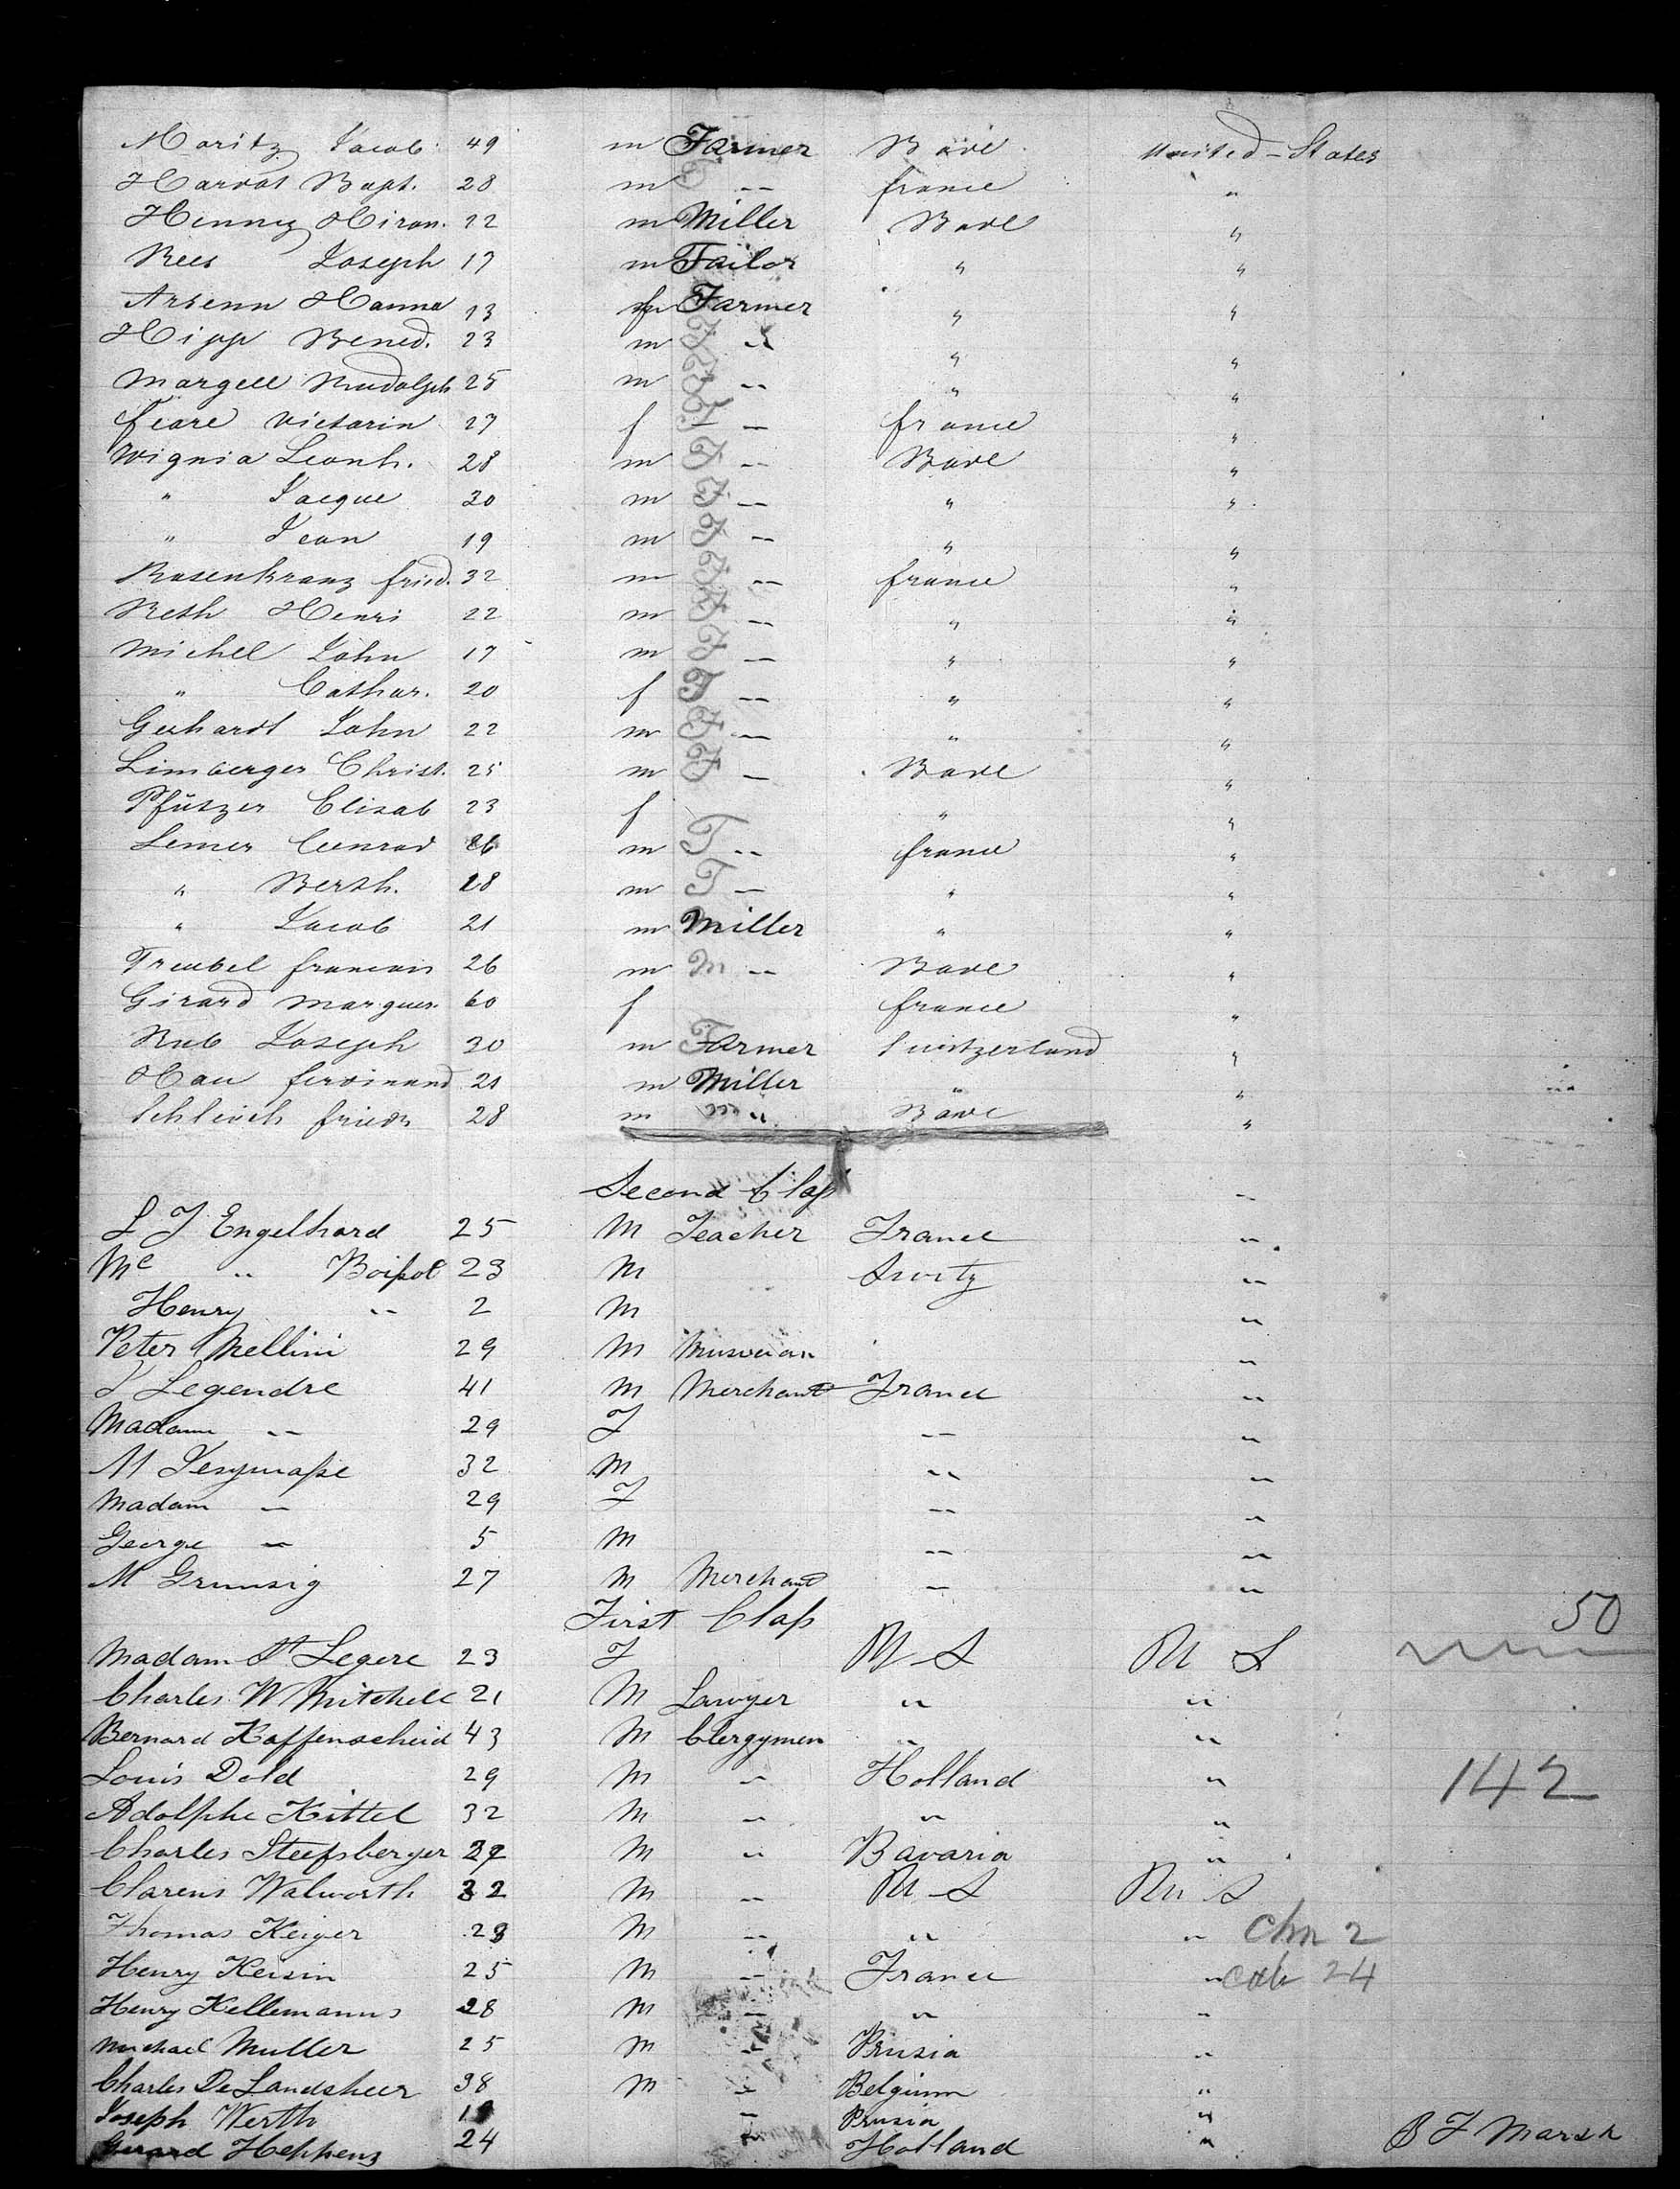 Moritz Jacob 49 m Farmer Bade United-States
Harvat Bapt. 28 m F -- france "
Henny Hiron. 22 m Miller Bade "
Rees Joseph 17 m Tailor " "
Arsenn Hanna 13 f Farmer " "
Hipp Bened. 23 m F " " "
Margell Rudolph 25 m F -- " "
Feare Victorin 27 f F -- france "
Wignia Leonh. 28 m F -- Bade "
" Jacque 30 m F -- " "
" Jean 19 m F -- " "
Rosenkranz fried. 32 m F -- france "
Reth Henri 22 m F -- " "
Michel John 17 m F -- " "
" Cathar. 20 f F -- " "
Gerhardt John 22 m F -- " "
Limberger Christ. 25 m F -- Bade "
Pfützer Elisab 23 f " "
Lemer Conrad 26 m F -- france "
" Berth. 28 m F -- " "
" Jacob 21 m Miller " "
Treubel francois 26 m m -- Bade "
Girard marguer. 60 f france "
Rub Joseph 30 m Farmer Switzerland "
Hau ferdinand 21 m Miller " "
Schleich friedr 28 m m " Bade "
Second Class "
L J Engelhard 25 M Teacher France "
Me " Boissot 23 M Switz "
Henry " 2 M "
Peter Mellini 29 M Musician "
J Legendre 41 M Merchant France "
Madam " 29 F " "
M 32 M " "
Madam " 29 F " "
George " 5 M " "
M Grunsig 27 M Merchant " "
First Class
50
Madam St Legere 23 F U S U S
Charles W Mitchell 21 M Lawyer " "
Bernard Kaffenscheid 43 M Clergymen " "
Louis Dold 29 M " Holland "
142
Adolphe Kittel 32 M " " "
Charles Steefsberger 32 M " Bavaria "
Clarens Walworth 32 M " U S U S
Thomas Keiger 23 M " " " chn 2
Henry Keisin 25 M " France " cab 24
Henry Kellemanns 28 M " " "
Michael Muller 25 M " Prusia "
Charles De Landsheer 38 M " Belgium "
Joseph Werth " Prusia "
Gerard Heppens 24 " Holland "
B F Marsh